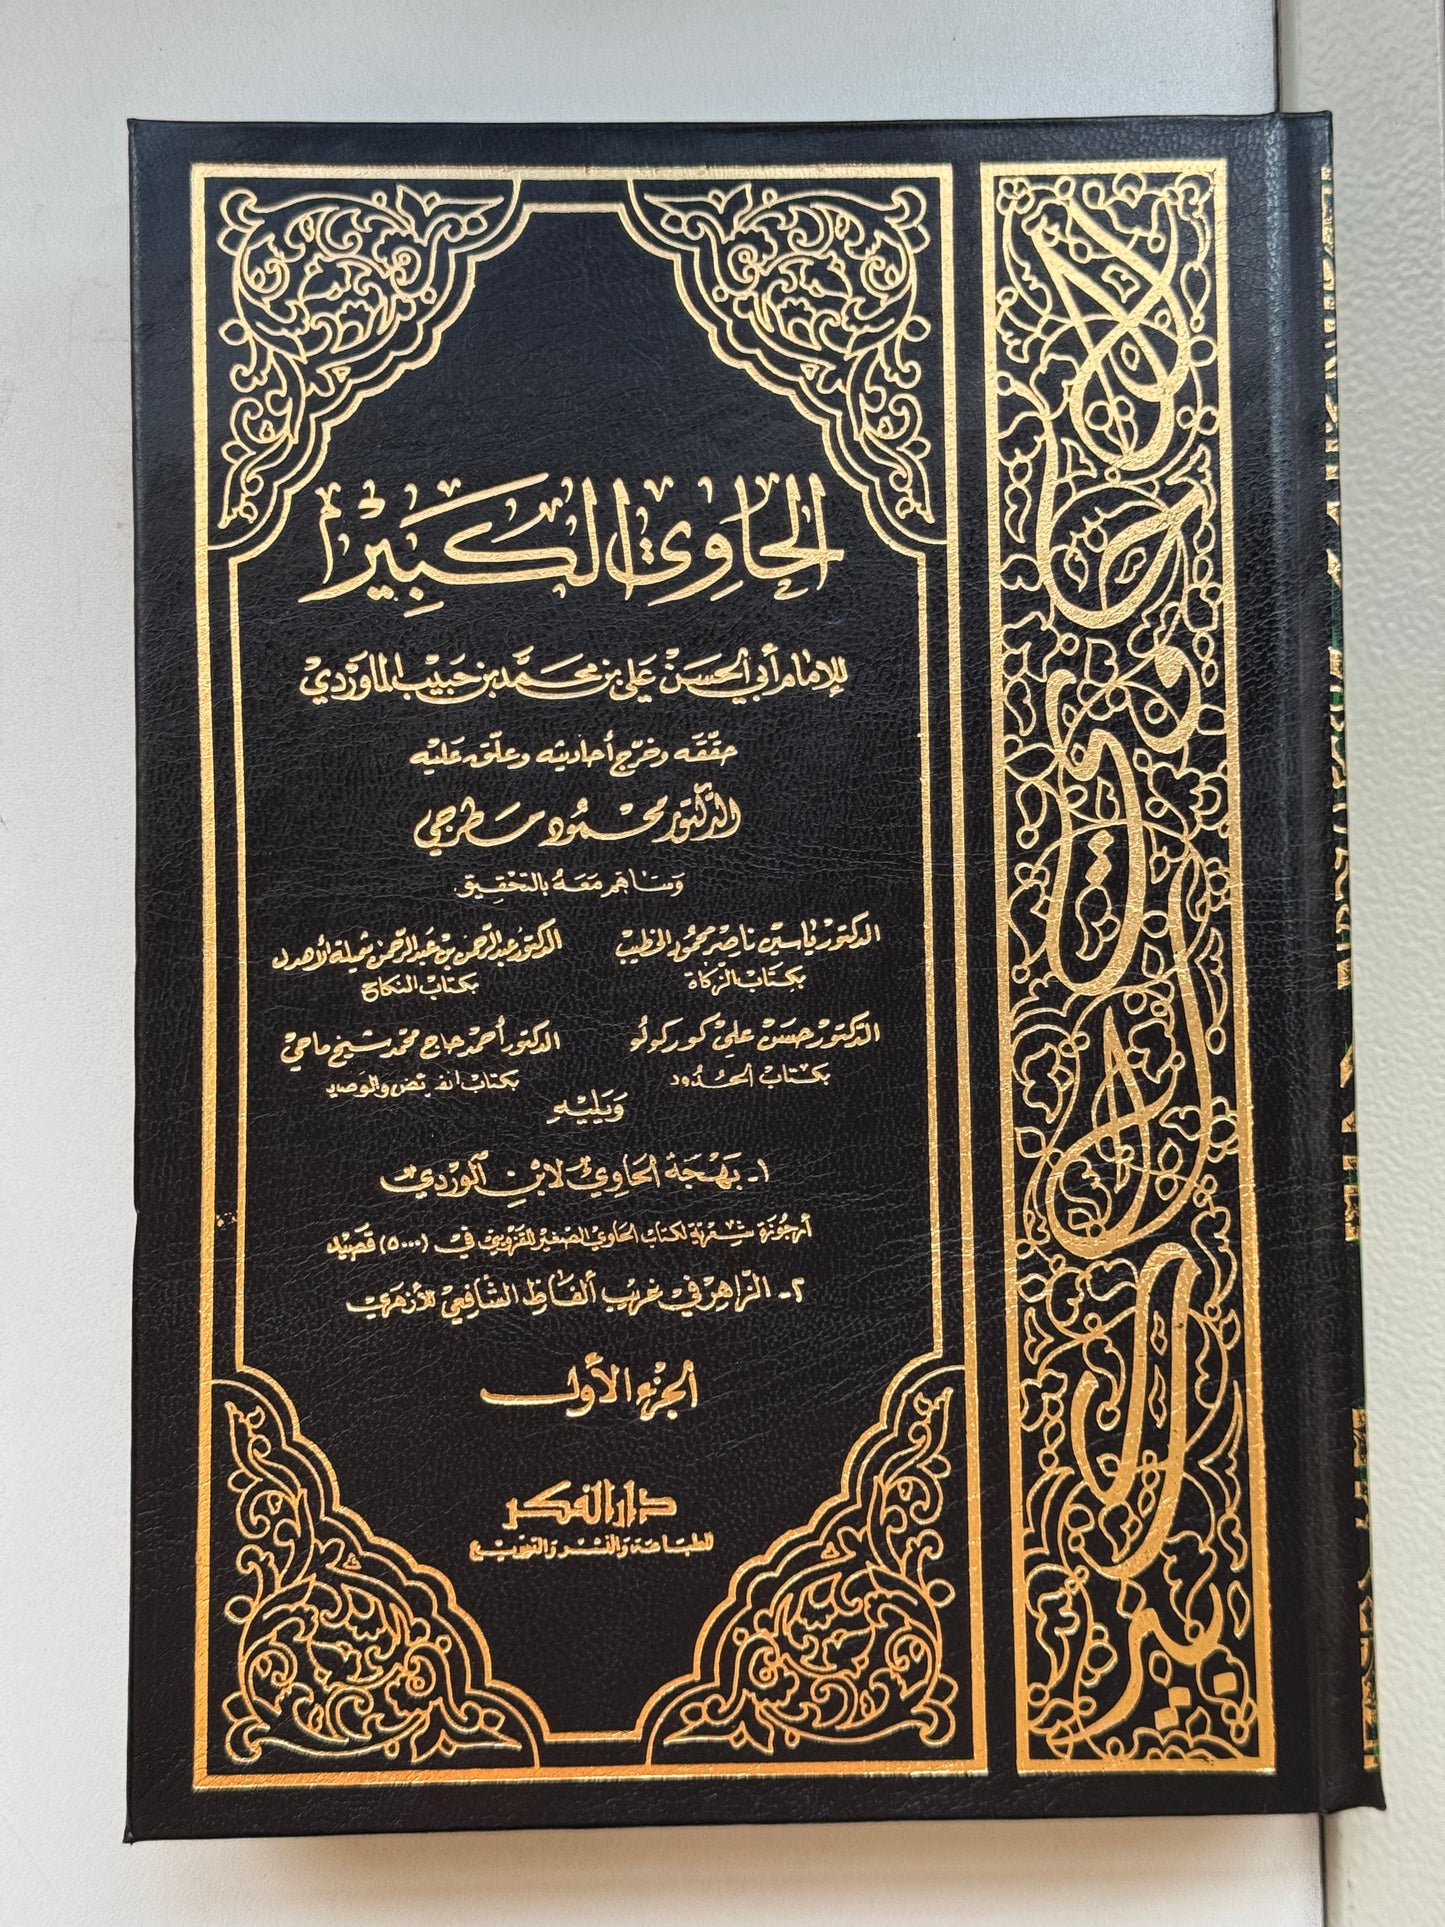 الحَاوِي الكَبِيْر
للإمام أبي الحَسَن عَلي بن محمَّد بن حَبيْب الماوَرْدِي
حقّقه وخرّج أحاديثه وعلّق عَليْه
الدّكتور محمُود مسطرجي
وسَاهَم مَعَهُ بالتحْقِيق
الدكتور ياسين ناصر محمود الخطيب
الدكتور عبد الرحمن بن عَبد الرحمن شميلة الأهدل
بكتَاب الزكاة
بكتاب النكاح
الدّكتور حسَن علي كوركولو
الدكتور أحمد حاج محمّد شيخ ماحي
بكتاب الحُدُود
بكتاب الفرائض والوصايا
وَيَليْهِ
١- بَهْجَة الحَاوِي لابْنِ الوَرْدي
أرجُوزة شِعْرية لكتاب الحاوي الصغير للقزويني في (٥٠٠٠) قصيد
٢- الزّاهر في غريب ألفاظ الشّافِعي للأزهَري
الجزء الأول
دار الفكر
للطبَاعة والنشر والتوزيع
الحاوي الكبير